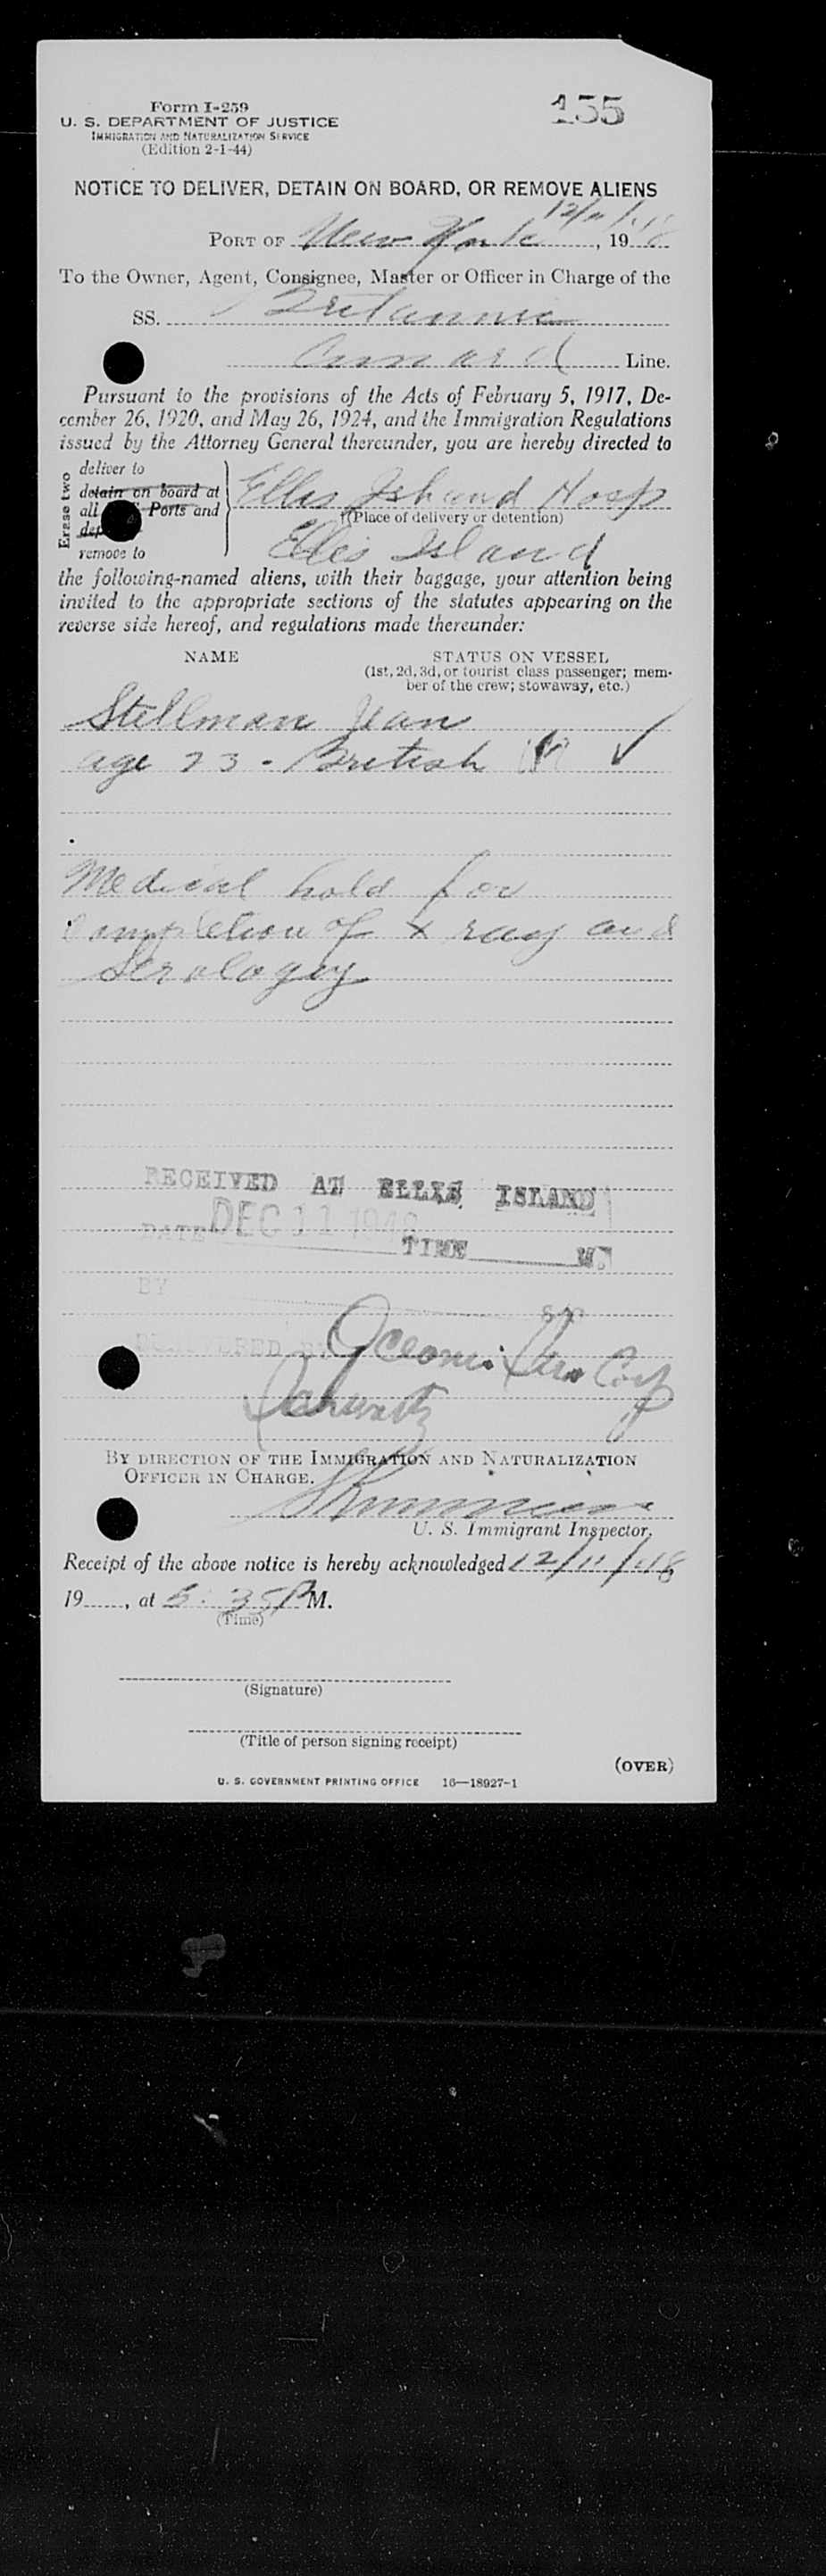 Form I-259
155
U. S. DEPARTMENT OF JUSTICE
IMMIGRATION AND NATURALIZATION SERVICE
(Edition 2-1-44)
NOTICE TO DELIVER, DETAIN ON BOARD, OR REMOVE ALIENS
12/11/48
PORT OF New York, 19 48
To the Owner, Agent, Consignee, Master or Officer in Charge of the
SS. Britannic
Cunard Line.
Pursuant to the provisions of the Acts of February 5, 1917, De-
cember 26, 1920, and May 26, 1924, and the Immigration Regulations
issued by the Attorney General thereunder, you are hereby directed to
Erase two
deliver to
detain on board at
all Ports and
remove to
Ellis Island Hosp
(Place of delivery or detention)
Ellis Island
the following-named aliens, with their baggage, your attention being
invited to the appropriate sections of the statutes appearing on the
reverse side hereof, and regulations made thereunder:
NAME
STATUS ON VESSEL
(1st, 2d, 3d, or tourist class passenger; mem-
ber of the crew; stowaway, etc.)
Stellman Jean
age 23 - British ✓
Medical hold for
Completion of X ray and
Serology
RECEIVED AT ELLIS ISLAND
DATE DEC 11 1948
TIME M.
BY
DELIVERED BY
Schwartz
BY DIRECTION OF THE IMMIGRATION AND NATURALIZATION
OFFICER IN CHARGE.
U. S. Immigrant Inspector.
Receipt of the above notice is hereby acknowledged 12/11/48
19, at 5:35 P M.
(Time)
(Signature)
(Title of person signing receipt)
(OVER)
U. S. GOVERNMENT PRINTING OFFICE 16—18927-1